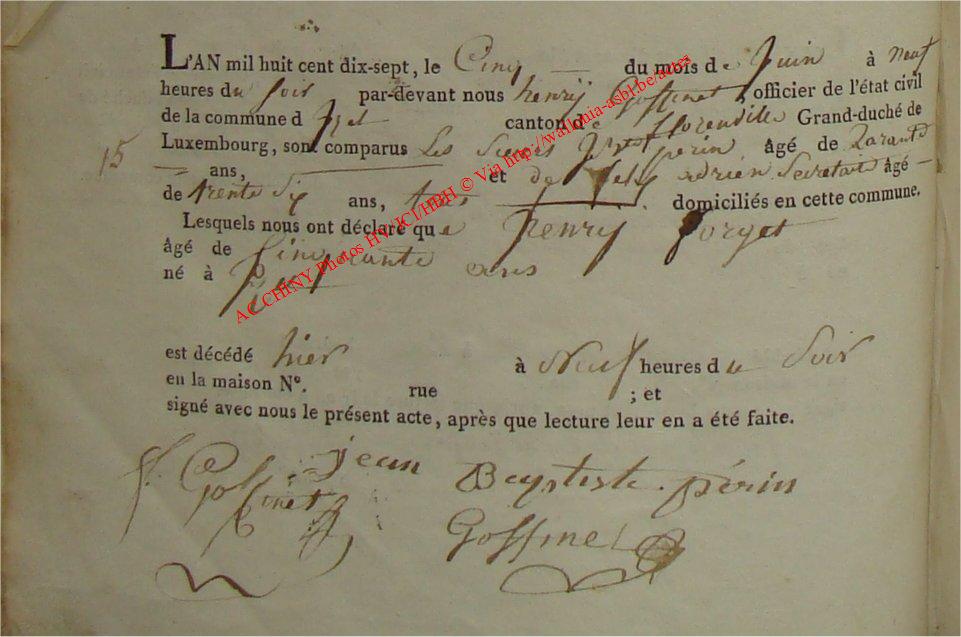 L'AN mil huit cent dix-sept, le Cinq du mois de Juin à neuf
heures du soir par-devant nous henrÿ Goffinet, officier de l'état civil
de la commune d Izel canton de florenville Grand-duché de
15
Luxembourg, sont comparus Les Sieurs perin âgé de
ans, et de adrien Secretaire âgé
de trente Six ans, domiciliés en cette commune.
Lesquels nous ont déclaré que henry forget
âgé de Cinquante ans
né à
est décédé hier à Neuf heures du Soir
en la maison N°. rue ; et
signé avec nous le présent acte, après que lecture leur en a été faite.
Goffinet jean Baptiste perin
Goffinet
AC CHINY Photos HV/JCl/HBH © Via http://wallonia-asbl.be/actes